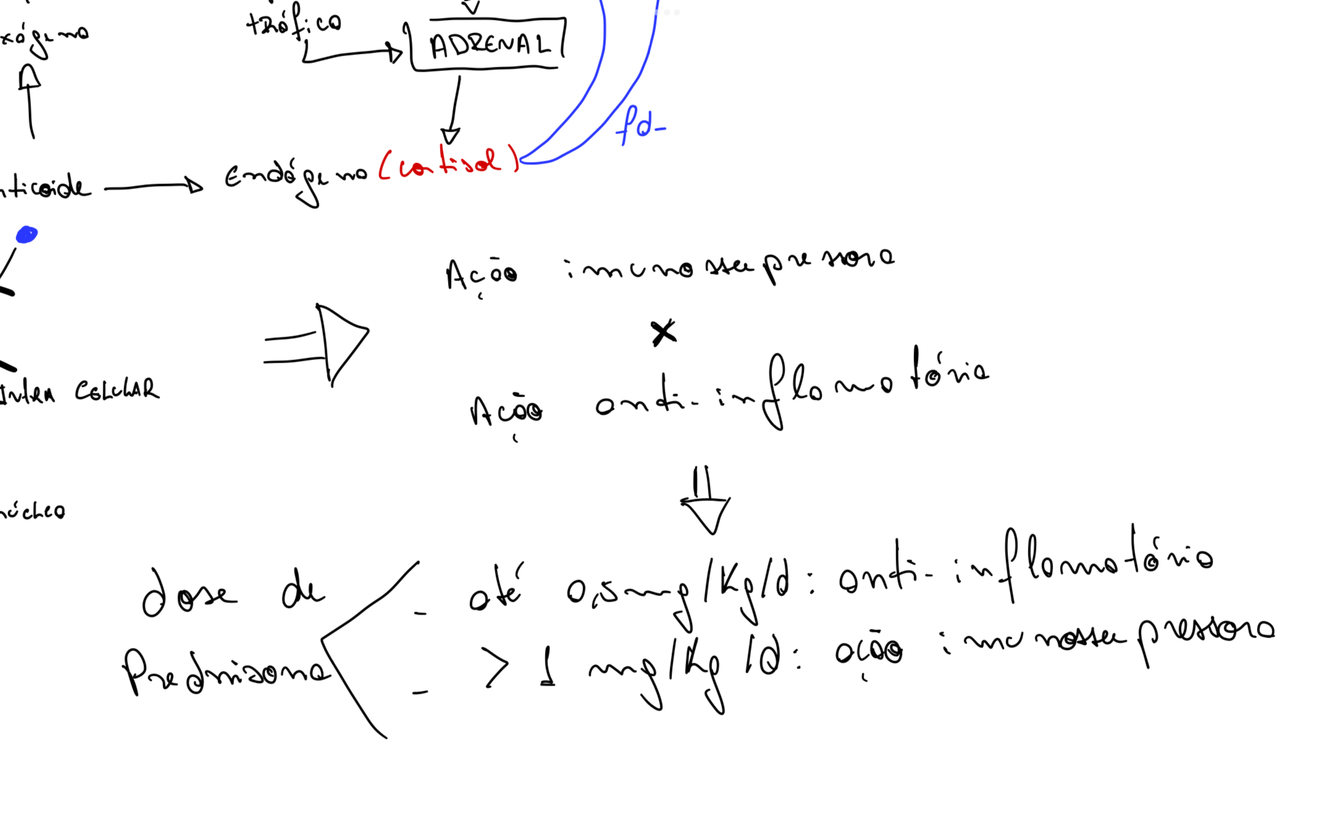 xógeno
trófico
ADRENAL
fd-
Endógeno (cortisol)
nticoide
Ação imunossupressora
x
Ação anti-inflamatória
Intra CELULAR
núcleo
dose de
Prednisona
- até 0,5mg/Kg/d: anti-inflamatório
- > 1 mg/Kg/d: ação imunossupressora